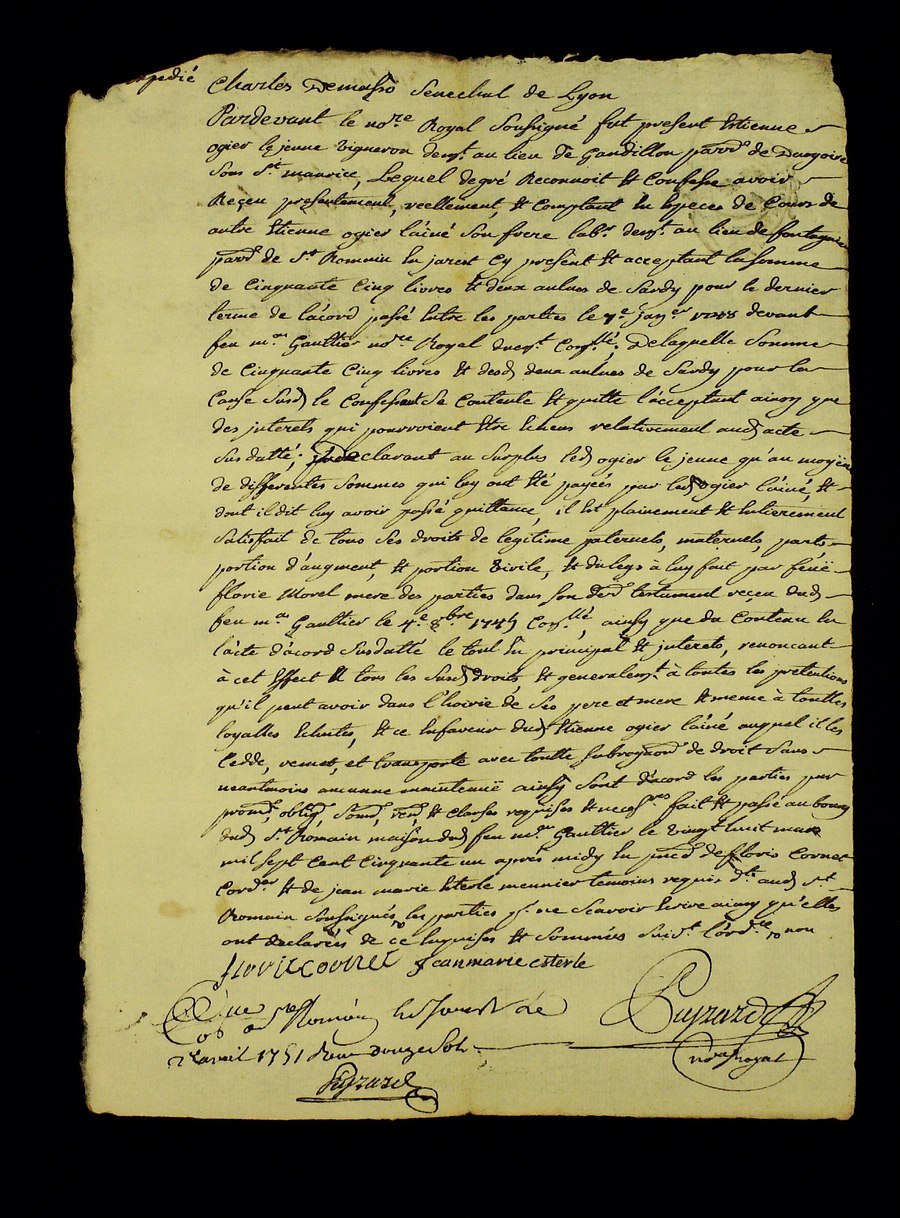 expedié
Charles Demasso Senechal de Lyon
Pardevant le nore Royal Soussigné fut present Etienne
ogier le jeune vigneron demt. au lieu de Gandillon parrse de Dargoire
Sous St. maurice, Lequel de gré Reconnoit Et Confesse avoir
Reçeu presentement, reellement, Et Comptant En Especes de Cours de
autre Etienne ogier l'ainé Son frere labr. demt. au lieu de fontagne
parrse de St Romain En jarest Cy present Et acceptant la Somme
de Cinquante Cinq livres Et deux aulnes de Sardy pour le dernier
terme de l'acord passé Entre les parties le 7e janer devant
feu me Gaulthier nore Royal dument Conllé; De laquelle Somme
de Cinquante Cinq livres Et desd deux aulnes de Sardy pour la
Cause Susd le Confessant Se Contente Et quitte l'acceptant ainsy que
des jnterets qui pourroient Etre Echeus relativement aud acte
Susdatté; declarant au Surplus led ogier le jeune qu'au moyën
de differentes Sommes qui luy ont Eté payées par led ogier l'ainé, Et
dont il dit luy avoir passé quittance, il Est plainement Et Entierement
Satisfait de tous Ses droits de legitime paternels, maternels, parts
portion d'augment, Et portion Virile, Et du legs à luy fait par feüe
florie Morel mere des parties dans Son dernr testament reçeu dud
feu me Gaulthier le 4e 8bre Conllé, ainsy que du Contenu En
l'acte d'acord Susdatté le tout En principal Et jnterets, renoncant
à cet Effect à tous les Susd droits, Et generalemt. à toutes les pretentions
qu'il peut avoir dans l'hoirie de Ses pere et mere Et meme à touttes
loyalles Echutes, Et ce En faveur dud Etienne ogier l'ainé auquel il les
Cedde, remet, et transporte avec toutte Subrogaon de droit Sans
neantmoins aucunne maintenüe ainsy Sont d'acord les parties par
prome, oblige, Soume, rene, Et Clauses requises Et necesres fait Et passé au bourg
dud St Romain maison dud feu me Gaulthier le Vingt huit mars
mil Sept Cent Cinquante un après midy En pnce de floris Cornet
Cordier Et de jean marie Esterle meunnier temoins requis dts aud St
Romain Soussignés, les parties pr. ne Scavoir Ecrire ainsy qu'elles
ont declarées de ce Enquises Et Sommées Suivt. l'ordce non
floricornet Jeanmarie esterle
a St Romain
2 avril 1751 Reçu douze Sols
Puyzard
Puyzard
nore royal